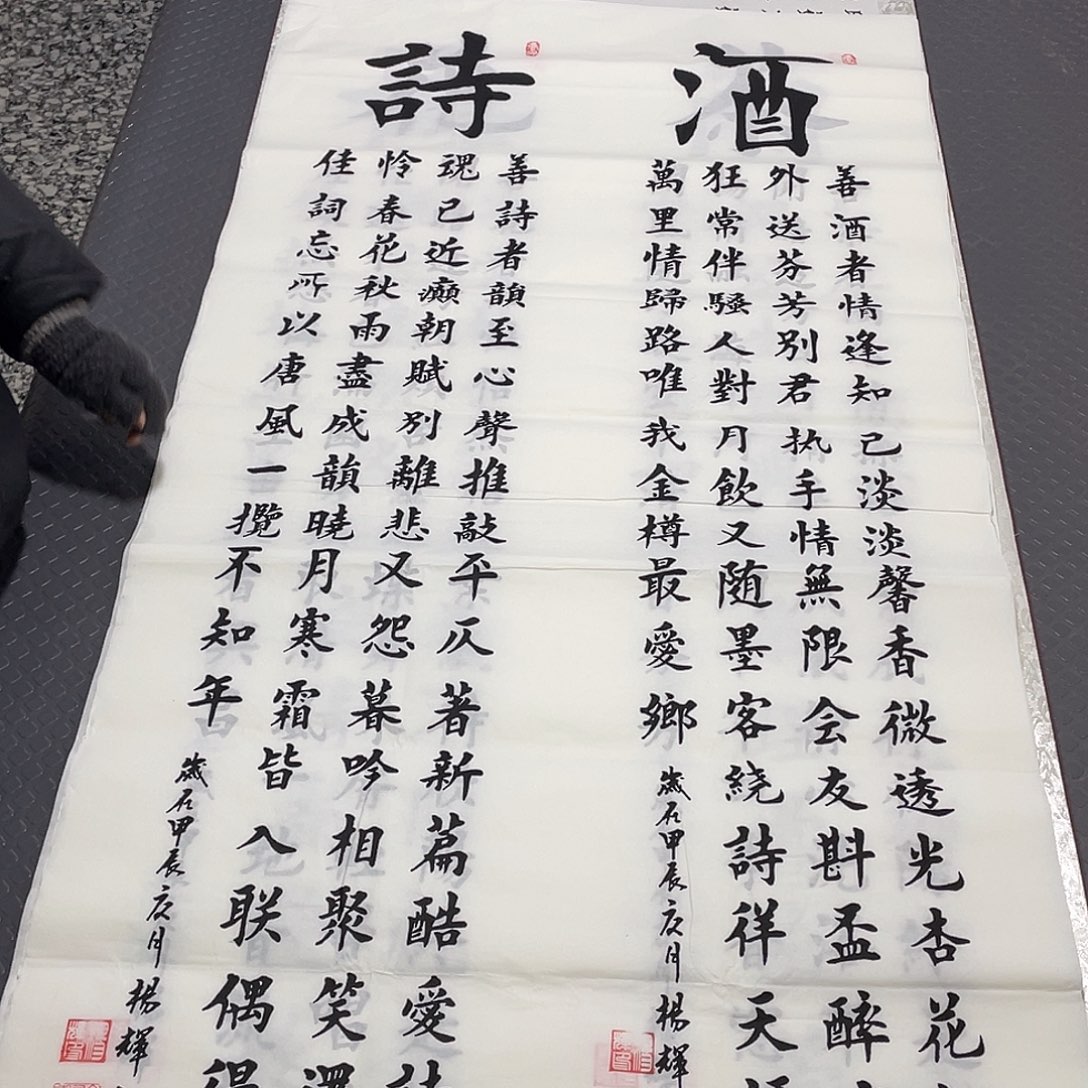 酒
善酒者情逢知己淡淡馨香微透光杏花
外送芬芳别君执手情無限会友斟盃醉
狂常伴騷人對月飲又随墨客绕詩徉天
萬里情歸路唯我金樽最愛鄉
歲在甲辰庚月楊輝
詩
善詩者韻至心聲推敲平仄著新萹酷愛
魂已近癲朝賦别離悲又怨暮吟相聚笑還
怜春花秋雨盡成韻曉月寒霜皆入联偶得
佳詞忘所以唐風一攬不知年
歲在甲辰庚月楊輝